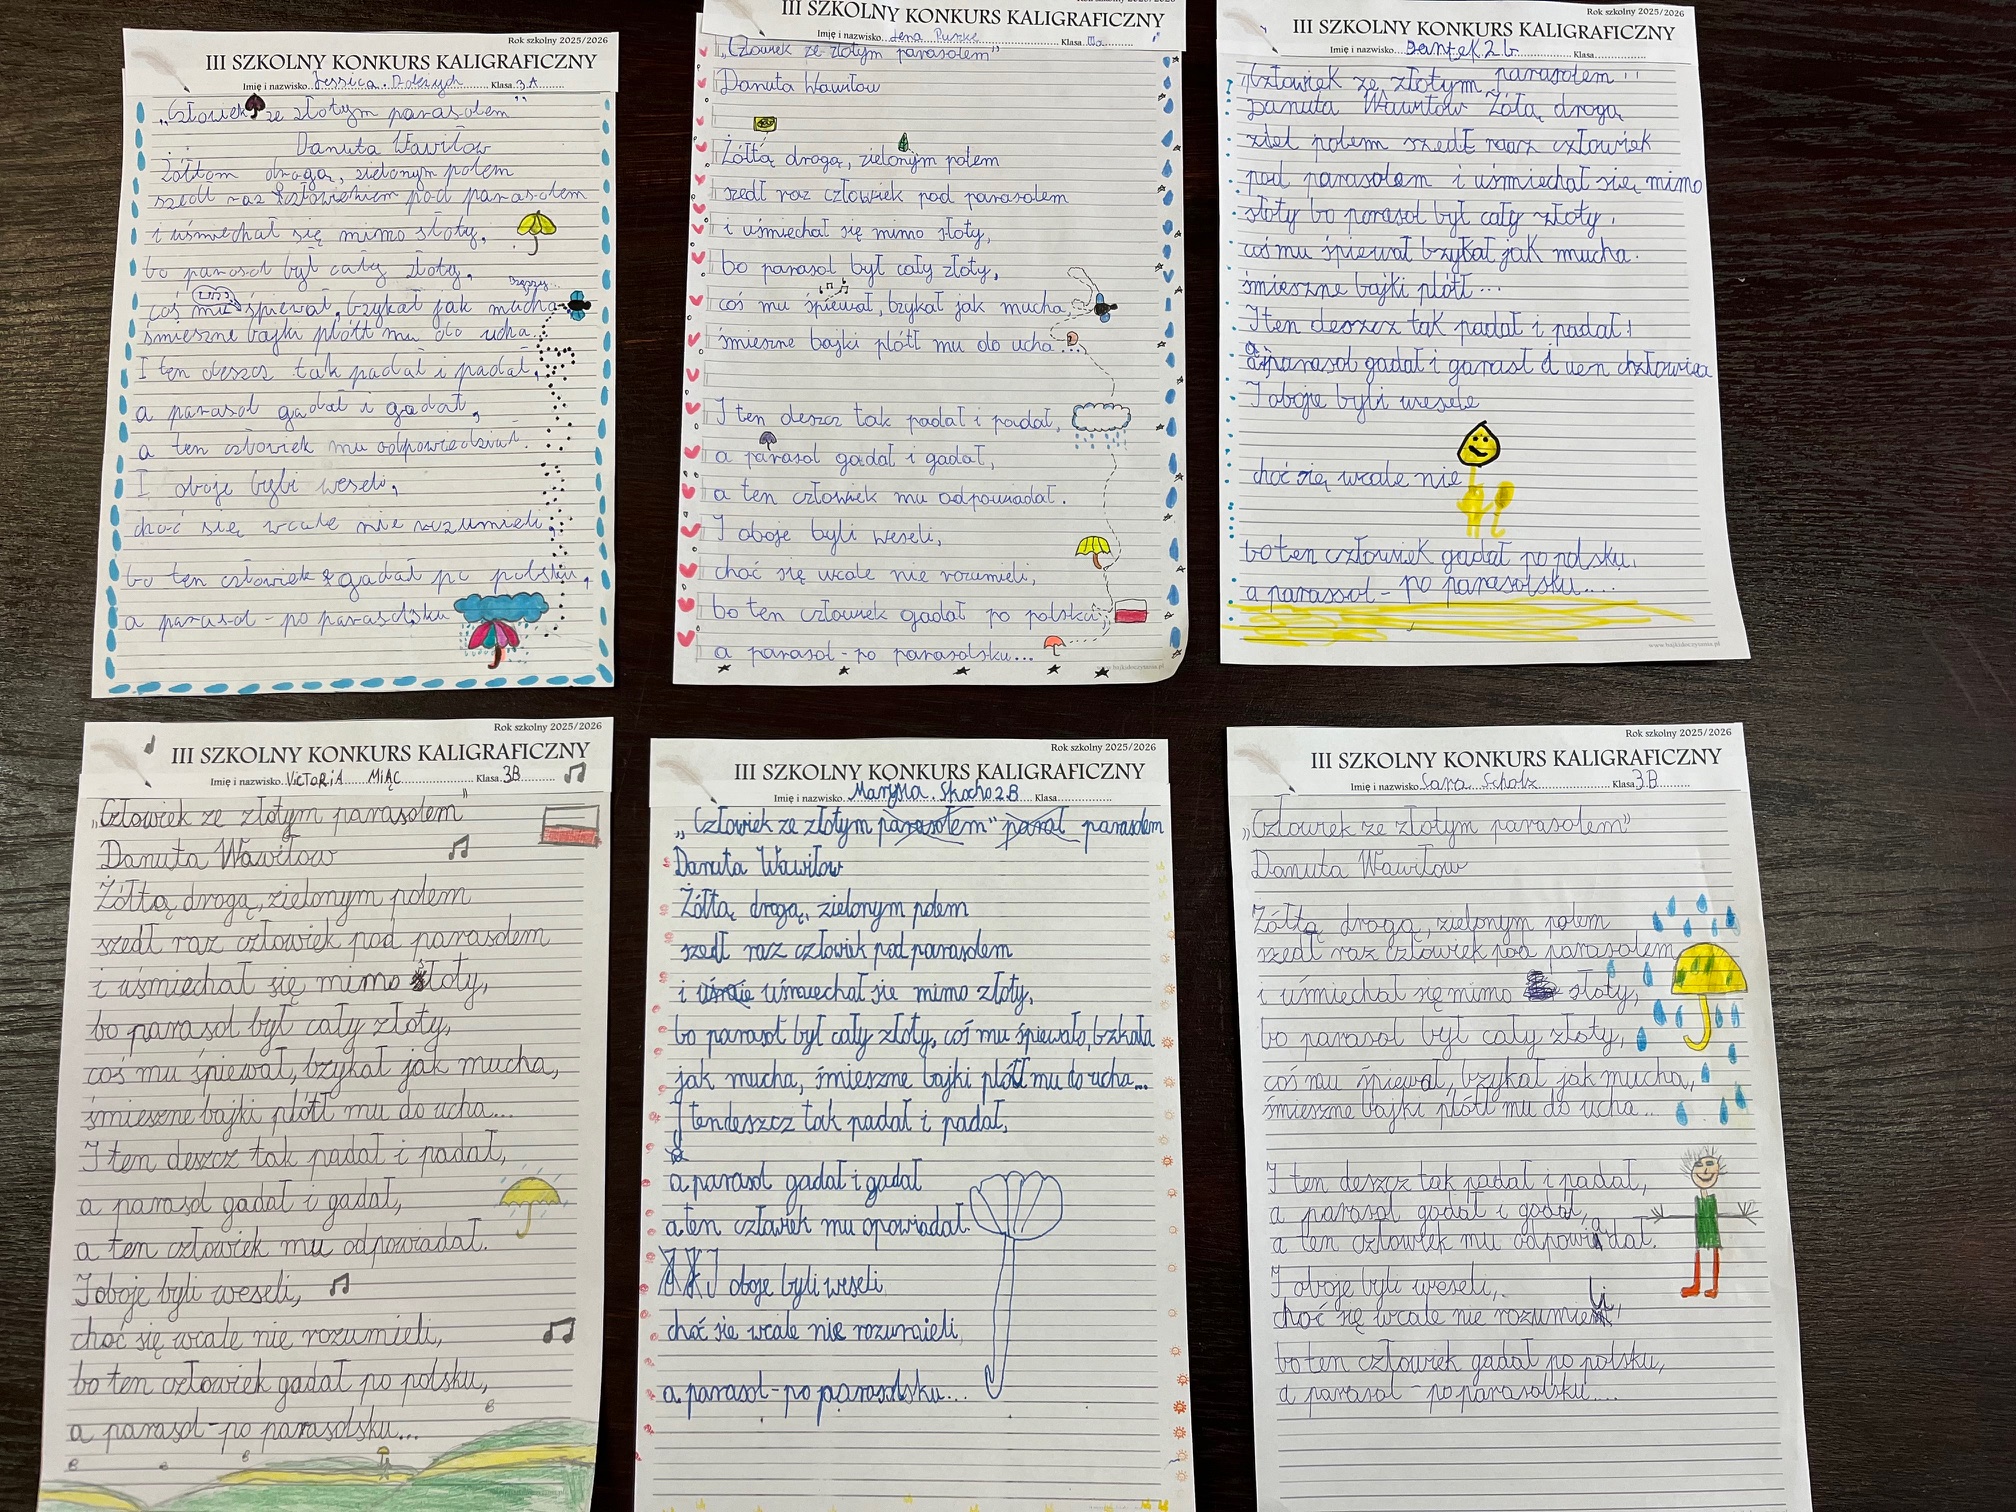 Rok szkolny 2025/2026
III SZKOLNY KONKURS KALIGRAFICZNY
Imię i nazwisko Jessica Klasa 3A
"Człowiek ze złotym parasolem"
Danuta Wawiłow
Żółtom drogą, zielonym polem
szedł raz człowiekiem pod parasolem
i uśmiechał się mimo słoty,
bo parasol był cały złoty,
coś mu śpiewał, bzykał jak mucha
śmieszne bajki plótł mu do ucha
I ten deszcz tak padał i padał,
a parasol gadał i gadał,
a ten człowiek mu odpowiedział.
I oboje byli weseli,
choć się wcale nie rozumieli,
bo ten człowiek gadał po polsku,
a parasol - po parasolsku
Rok szkolny 2025/2026
III SZKOLNY KONKURS KALIGRAFICZNY
Imię i nazwisko Lena Klasa IIIa
"Człowiek ze złotym parasolem"
Danuta Wawiłow
Żółtą drogą, zielonym polem
szedł raz człowiek pod parasolem
i uśmiechał się mimo słoty,
bo parasol był cały złoty,
coś mu śpiewał, bzykał jak mucha,
śmieszne bajki plótł mu do ucha...
I ten deszcz tak padał i padał,
a parasol gadał i gadał,
a ten człowiek mu odpowiadał.
I oboje byli weseli,
choć się wcale nie rozumieli,
bo ten człowiek gadał po polsku,
a parasol - po parasolsku...
www.bajkidoczytania.pl
Rok szkolny 2025/2026
III SZKOLNY KONKURS KALIGRAFICZNY
Imię i nazwisko Bartek 2b Klasa
"Człowiek ze złotym parasolem"
Danuta Wawiłow Żółtą drogą
ziel polem szedł raaz człowiek
pod parasolem i uśmiechał się mimo
słoty bo parasol był cały złoty,
coś mu śpiewał bzykał jak mucha.
śmieszne bajki plótł...
I ten deszcz tak padał i padał!
a parasol gadał i
I oboje byli wesele
choć się wcale nie
bo ten człowiek gadał po polsku,
a parassol - po parasolsku....
www.bajkidoczytania.pl
Rok szkolny 2025/2026
III SZKOLNY KONKURS KALIGRAFICZNY
Imię i nazwisko VICTORIA MIĄC Klasa 3B
"Człowiek ze złotym parasolem"
Danuta Wawiłow
Żółtą drogą, zielonym polem
szedł raz człowiek pod parasolem
i uśmiechał się mimo słoty,
bo parasol był cały złoty,
coś mu śpiewał, bzykał jak mucha,
śmieszne bajki plótł mu do ucha...
I ten deszcz tak padał i padał,
a parasol gadał i gadał,
a ten człowiek mu odpowiadał.
I oboje byli weseli,
choć się wcale nie rozumieli,
bo ten człowiek gadał po polsku,
a parasol - po parasolsku...
Rok szkolny 2025/2026
III SZKOLNY KONKURS KALIGRAFICZNY
Imię i nazwisko Marysia Skocho 2B Klasa
"Człowiek ze złotym parasolem" paral parasolem
Danuta Wawiłow
Żółtą drogą, zielonym polem
szedł raz człowiek pod parasolem
i uśmiechał sie mimo złoty,
bo parasol był cały złoty, coś mu śpiewało, bzkała
jak mucha, śmieszne bajki plótł mu do ucha...
I ten deszcz tak padał i padał,
a parasol gadał i gadał
a ten człowiek mu opowiadał.
I oboje byli weseli
choć sie wcale nie rozumieli,
a parasol - po parasolsku...
Rok szkolny 2025/2026
III SZKOLNY KONKURS KALIGRAFICZNY
Imię i nazwisko Sara Scholz Klasa 3B
"Człowiek ze złotym parasolem"
Danuta Wawiłow
Żółtą drogą, zielonym polem
szedł raz człowiek pod parasolem
i uśmiechał się mimo słoty,
bo parasol był cały złoty,
coś mu śpiewał, bzykał jak mucha,
śmieszne bajki plótł mu do ucha...
I ten deszcz tak padał i padał,
a parasol gadał i gadał,
a ten człowiek mu odpowiadał.
I oboje byli weseli,
choć się wcale nie rozumieli,
bo ten człowiek gadał po polsku,
a parasol - po parasolsku....